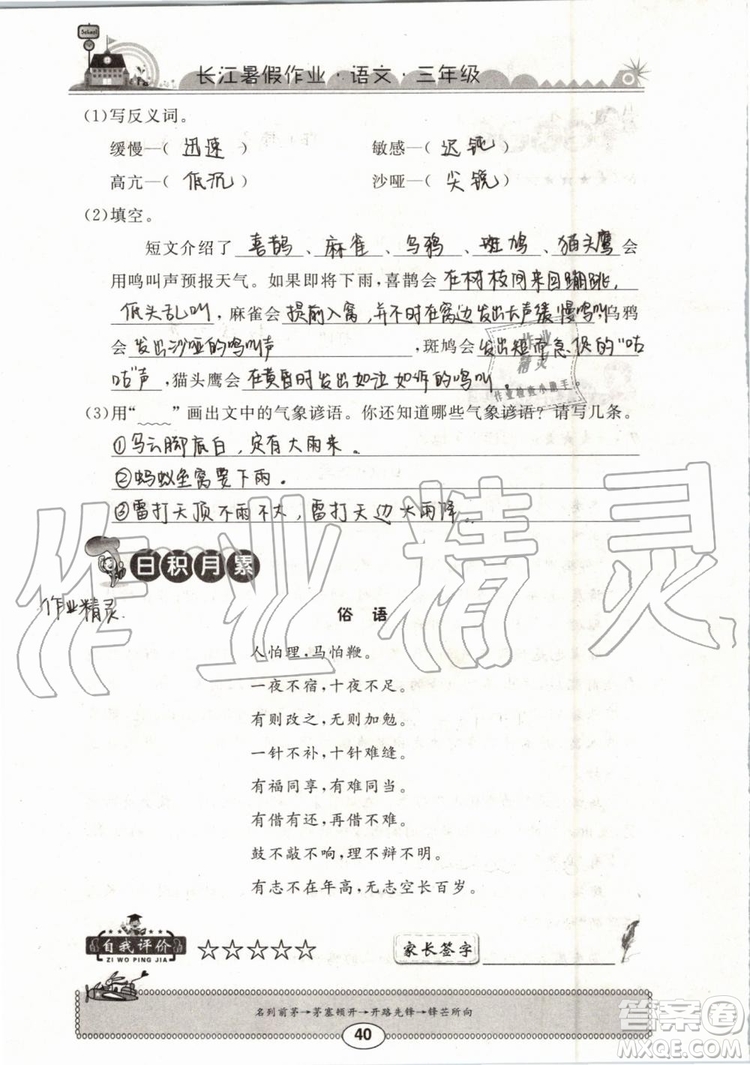 School
长江暑假作业·语文·三年级
(1)写反义词。
缓慢—( 迅速 ) 敏感—( 迟钝 )
高亢—( 低沉 ) 沙哑—( 尖锐 )
(2)填空。
短文介绍了 喜鹊 、麻雀 、乌鸦 、斑鸠 、猫头鹰 会
用鸣叫声预报天气。如果即将下雨，喜鹊会 在树枝间来回蹦跳
低头乱叫，麻雀会 提前入窝，并不时在窝边发出长声缓慢鸣叫，乌鸦
会 发出沙哑的鸣叫声 ，斑鸠会 发出短而急促的“咕
咕”声，猫头鹰 会在黄昏时发出如泣如诉的鸣叫。
(3)用“ ”画出文中的气象谚语。你还知道哪些气象谚语？请写几条。
①乌云脚底白，定有大雨来。
②蚂蚁垒窝要下雨。
③雷打天顶不雨不大，雷打天边大雨降。
日积月累
作业精灵
俗 语
人怕理，马怕鞭。
一夜不宿，十夜不足。
有则改之，无则加勉。
一针不补，十针难缝。
有福同享，有难同当。
有借有还，再借不难。
鼓不敲不响，理不辩不明。
有志不在年高，无志空长百岁。
自我评价 ☆☆☆☆☆ 家长签字
ZI WO PING JIA
名列前茅→茅塞顿开→开路先锋→锋芒所向
40
作业精灵
作业
精灵
答案卷
MXQE.COM